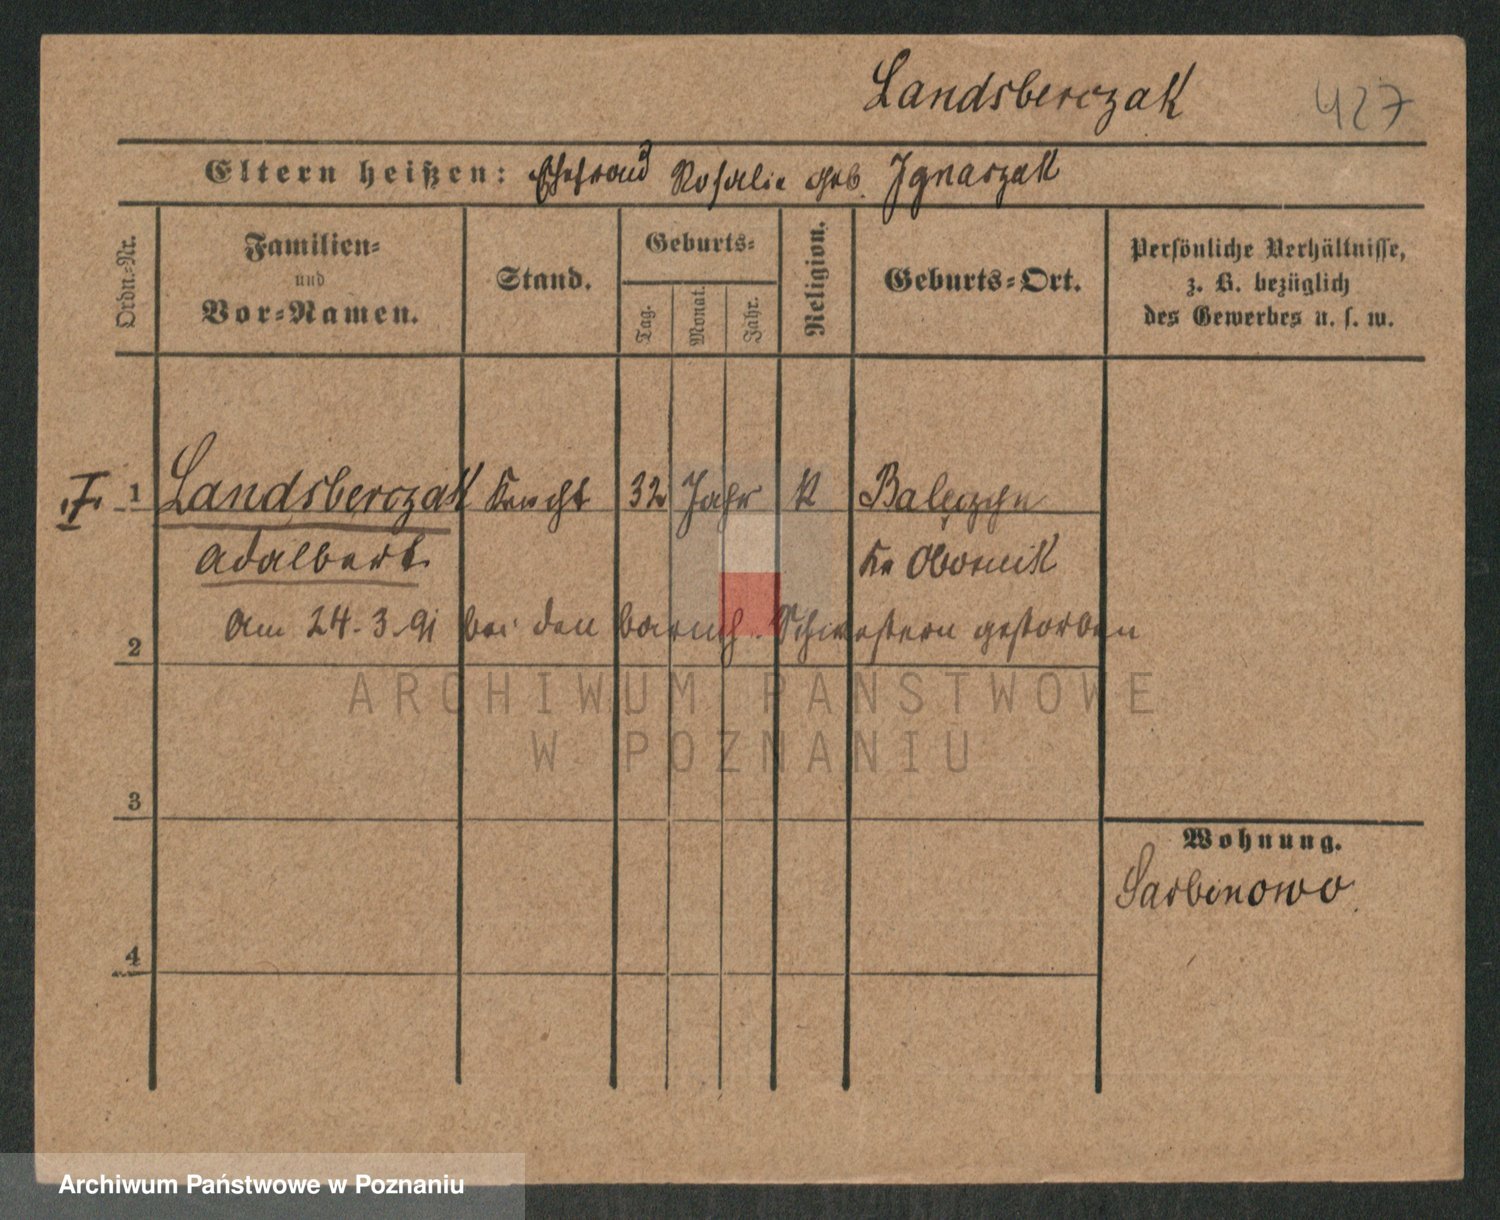 Landsberczak 427
Eltern heißen: Ehefrau Rosalie geb. Ignaszak
Ordn.-Nr.
Familien-
und
Vor-Namen.
Stand.
Geburts-
Tag.
Monat.
Jahr.
Religion.
Geburts-Ort.
Persönliche Verhältnisse,
z. B. bezüglich
des Gewerbes u. s. w.
I. 1 Landsberczak Knecht 32 Jahr K
Adalbert. Kr Obornik
2 Am 24.3.91 bei den barmh. Schwestern gestorben
ARCHIWUM PAŃSTWOWE
W POZNANIU
3
Wohnung.
Sarbinowo
4
Archiwum Państwowe w Poznaniu